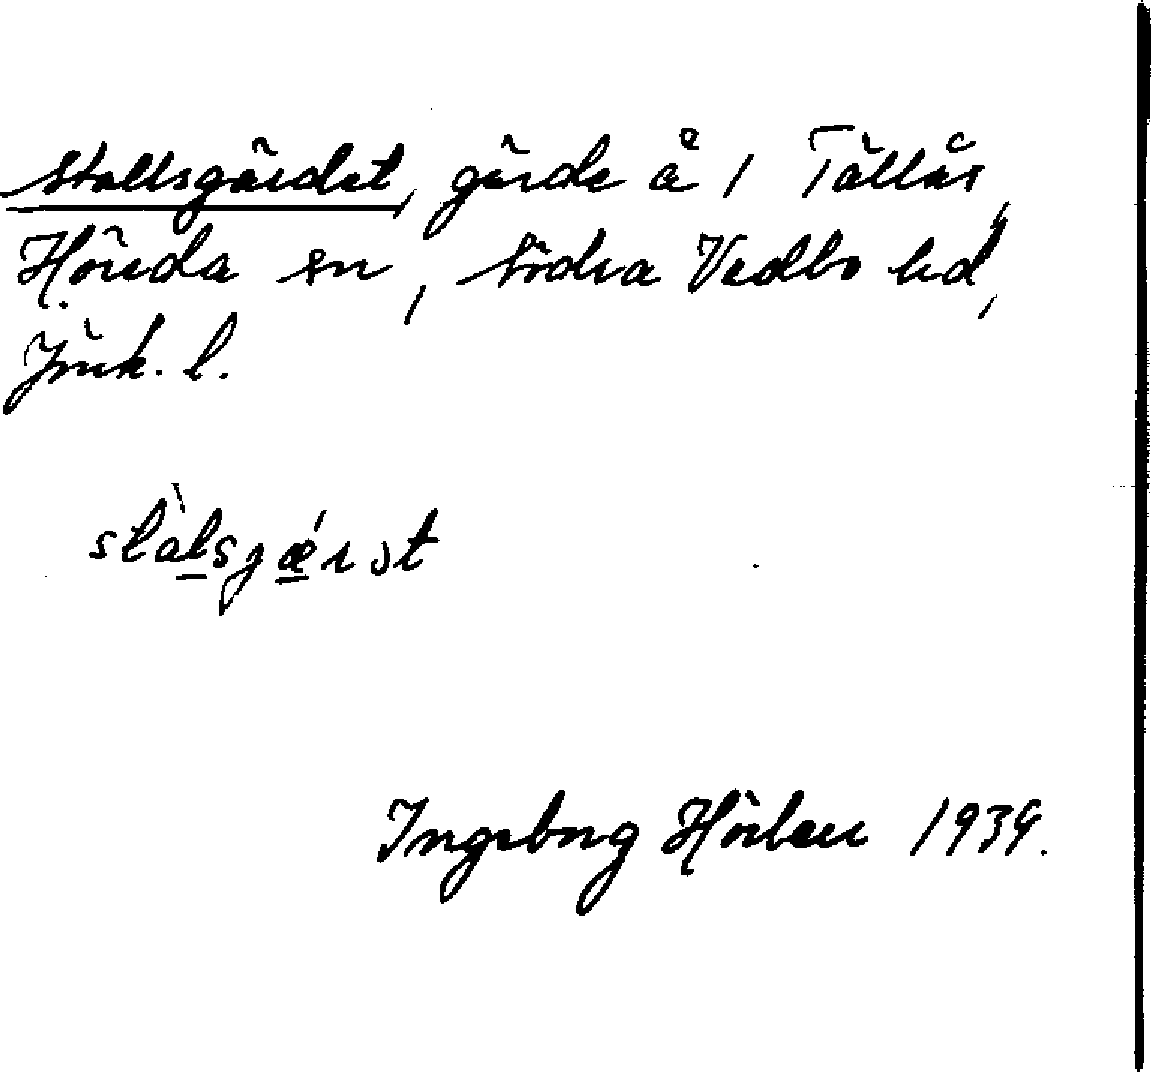 Stallsgärdet, gärde å 1 Tällås,
Höreda sn, Södra Vedbo hd,
Jönk. l.
stàlsgǽrət
Ingeborg Hörlen 1939.